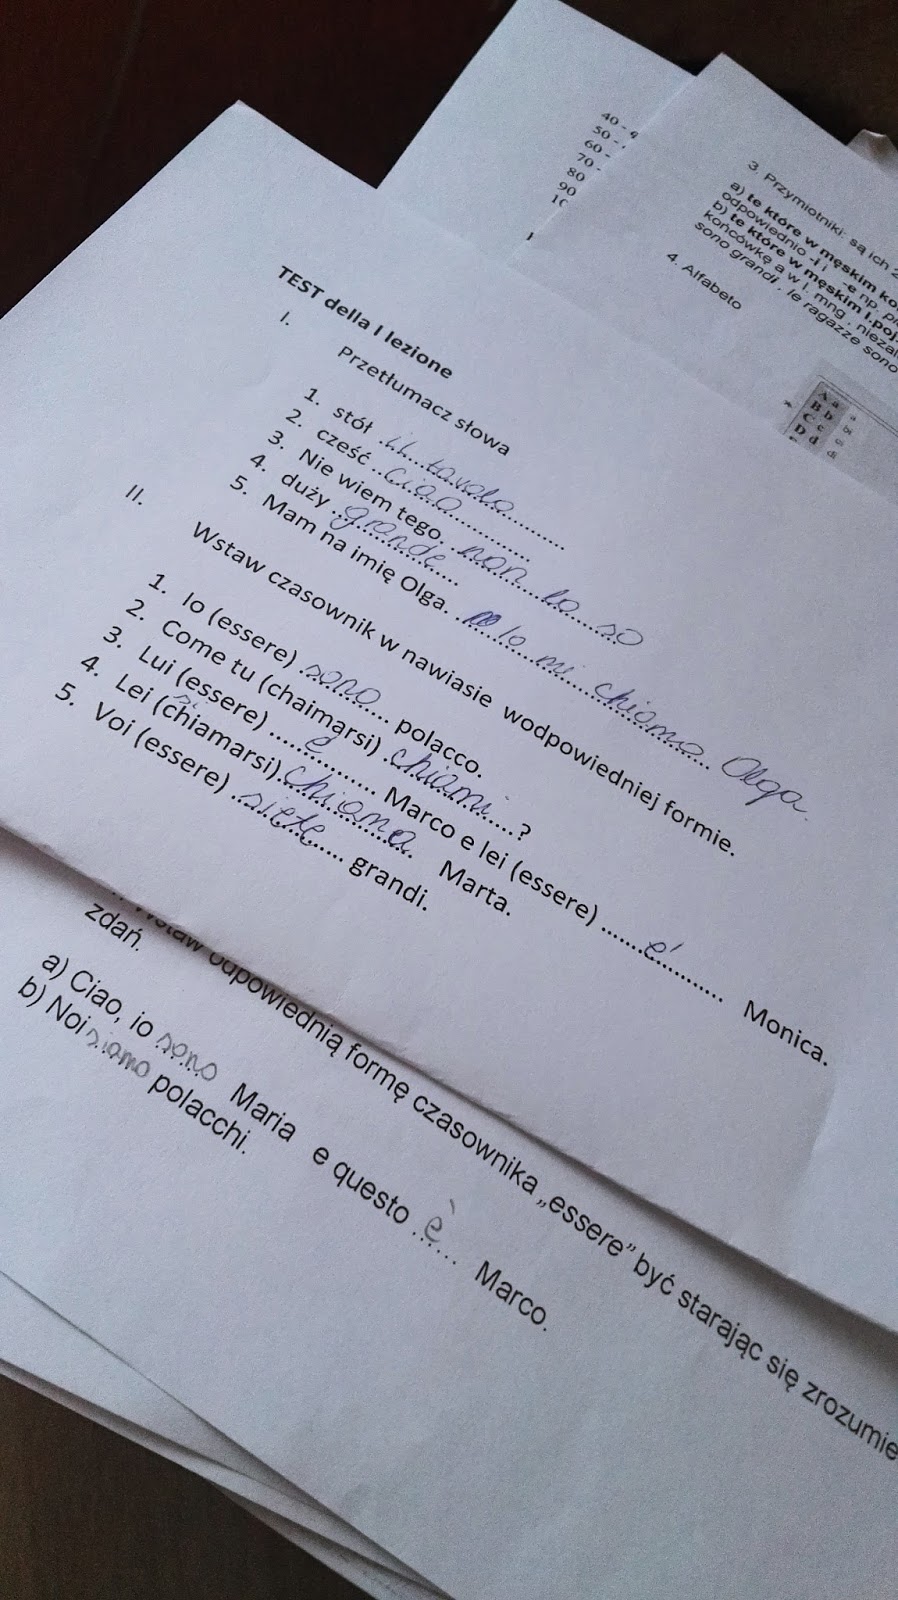 40 - 4
50 -
60 -
70 -
80
90
3. Przymiotniki: są ich 2
a) te które w męskim ko
odpowiednio -i i -e np. pi
b) te które w męskim l.poj.
końcówkę a w l. mng . nieza
sono grandi , le ragazze sono
4. Alfabeto
A a a
B b bi
C c ci
D d di
TEST della I lezione
I. Przetłumacz słowa
1. stół il tavolo
2. cześć ciao
3. Nie wiem tego. non lo so
4. duży grande
5. Mam na imię Olga. Io mi chiamo Olga.
II. Wstaw czasownik w nawiasie wodpowiedniej formie.
1. Io (essere) sono polacco.
2. Come tu (chaimarsi) chiami ?
3. Lui (essere) è Marco e lei (essere) é Monica.
4. Lei (chiamarsi) si chiama Marta.
5. Voi (essere) siete grandi.
Wstaw odpowiednią formę czasownika „essere” być starając się zrozumie
zdań.
a) Ciao, io sono Maria e questo è Marco.
b) Noi siamo polacchi.